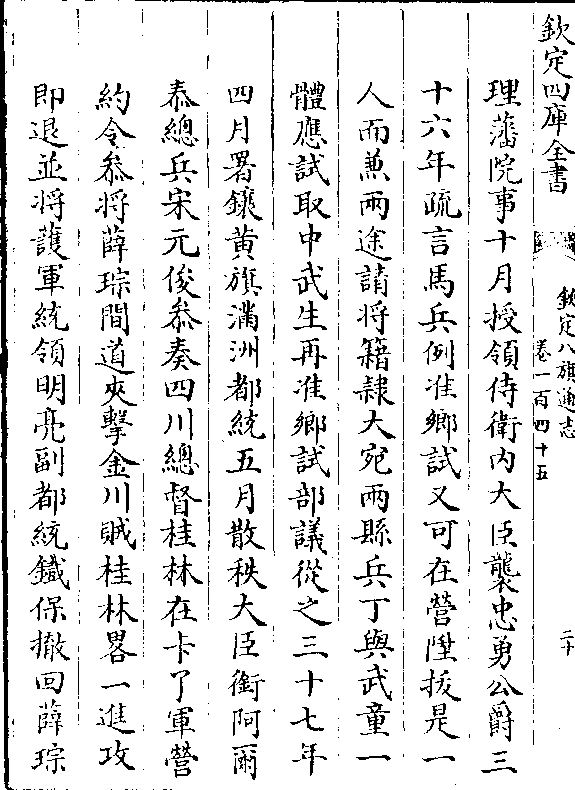 欽定四庫全書
欽定八旗通志
卷一百四十五
二十
理藩院事十月授領侍衛内大臣襲忠勇公爵三
十六年疏言馬兵例准鄉試又可在營陞拔是一
人而兼兩途請将籍隸大宛兩縣兵丁與武童一
體應試取中武生再准鄉試部議從之三十七年
四月署鑲黄旗滿洲都統五月散秩大臣銜阿爾
泰總兵宋元俊叅奏四川總督桂林在卡了軍營
約令叅将薛琮間道夾擊金川賊桂林畧一進攻
即退並将護軍統領明亮副都統鐵保撤回薛琮